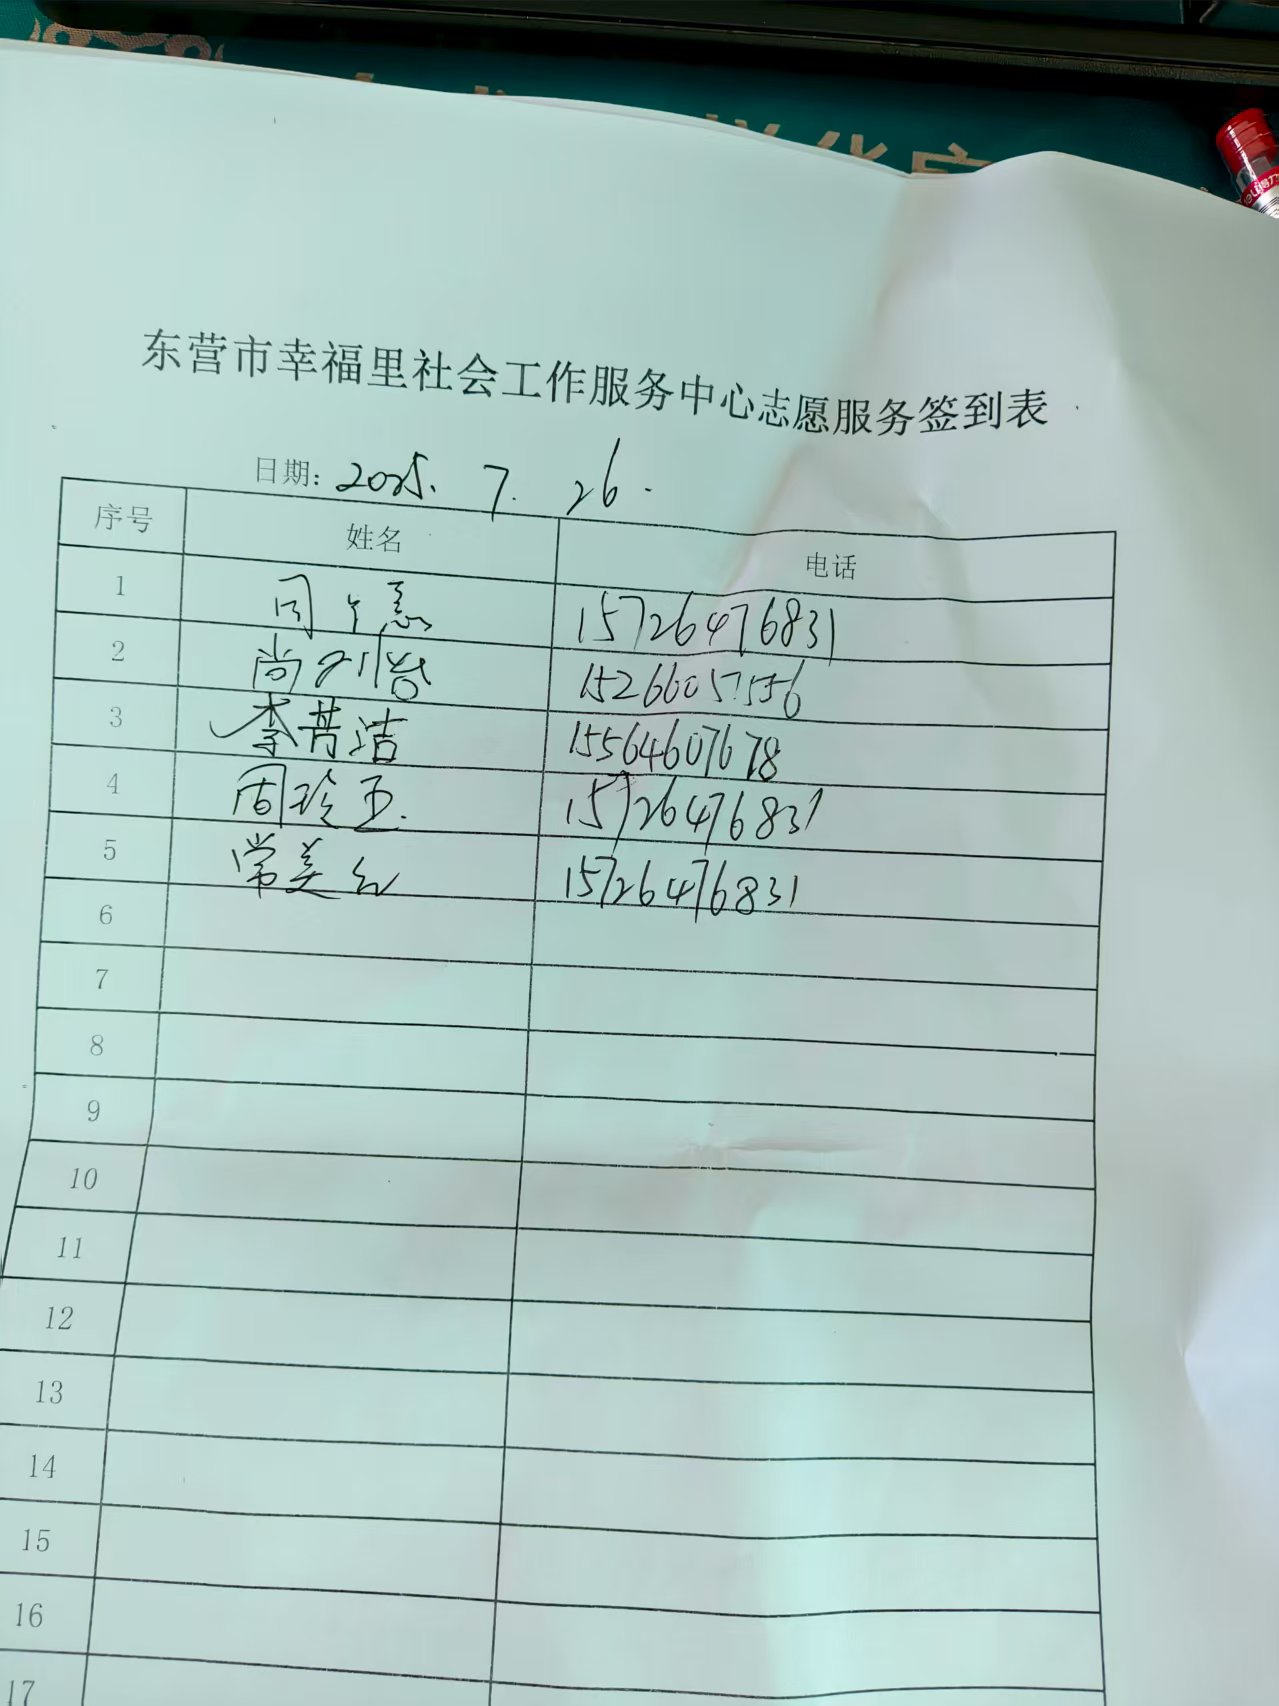 东营市幸福里社会工作服务中心志愿服务签到表
日期: 2025. 7. 26.
序号 姓名 电话
1 15726476831
2 尚 15266057556
3 李芳洁 15564607678
4 周玲玉. 15726476831
5 常美红 15726476831
6
7
8
9
10
11
12
13
14
15
16
17